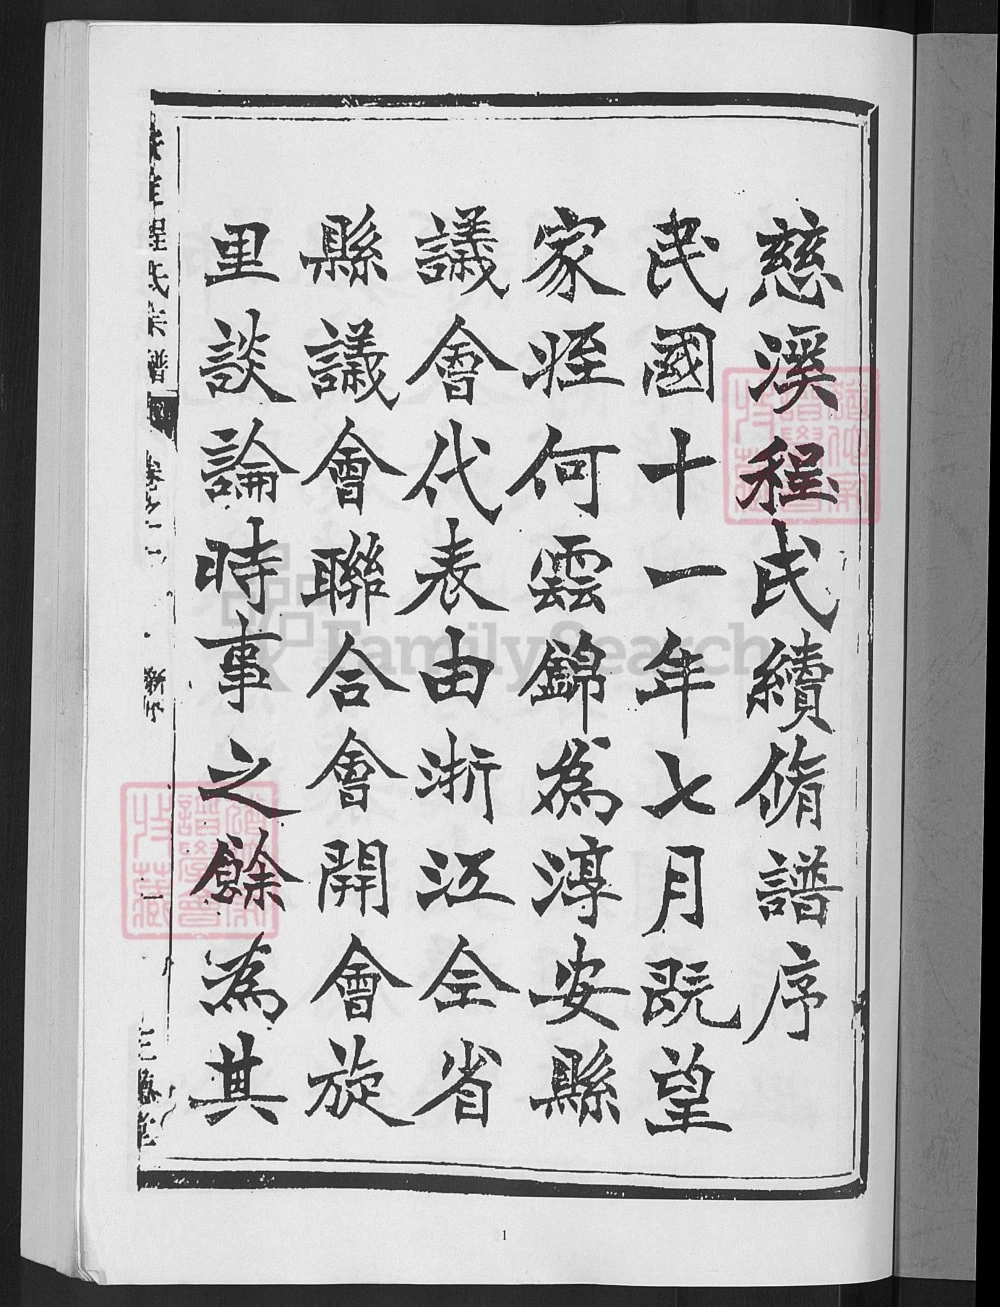 慈溪程氏續脩譜序
民國十一年七月既望
家姪何雲錦為淳安縣
議會代表由浙江全省
縣議會聯合會開會旋
里談論時事之餘為其
程氏宗譜 卷之一 新序 一
FamilySearch
1